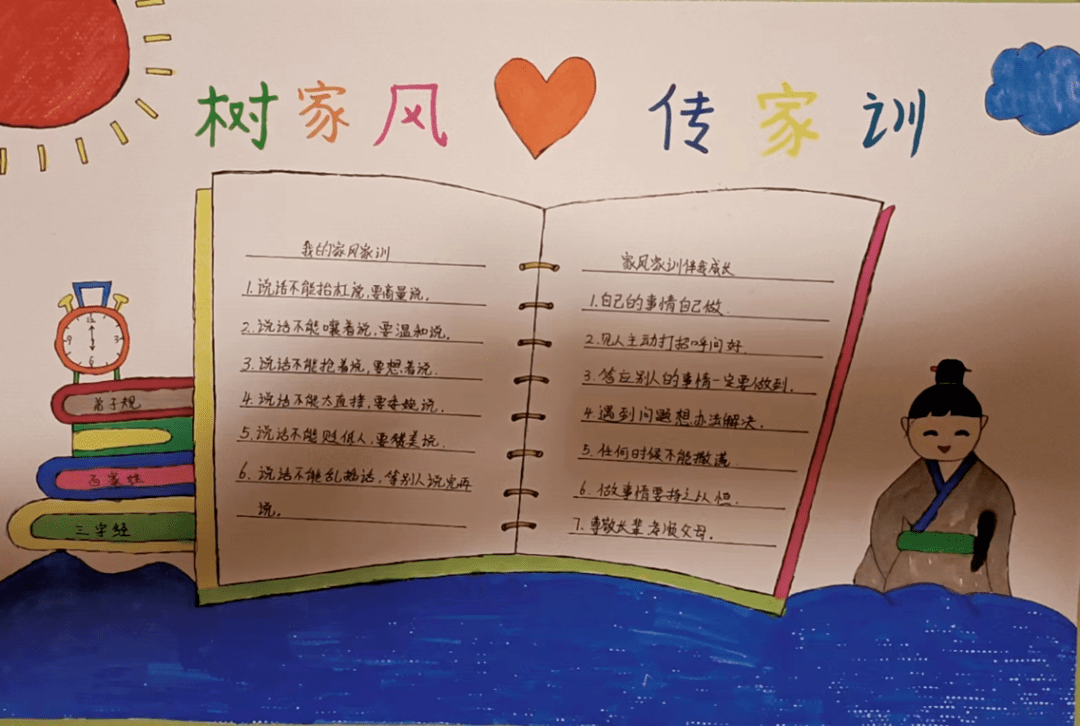 树家风 传家训
我的家风家训
1.说话不能抬杠说,要商量说。
2.说话不能嚷着说,要温和说。
3.说话不能抢着说,要想着说.
4.说话不能太直接,要委婉说.
5.说话不能贬低人,要赞美说.
6.说话不能乱插话,等别人说完再
说。
家风家训伴我成长
1.自己的事情自己做.
2.见人主动打招呼问好.
3.答应别人的事情一定要做到.
4.遇到问题想办法解决.
5.任何时候不能撒谎.
6.做事情要持之以恒.
7.尊敬长辈孝顺父母.
12
3
6
弟子规
百家姓
三字经